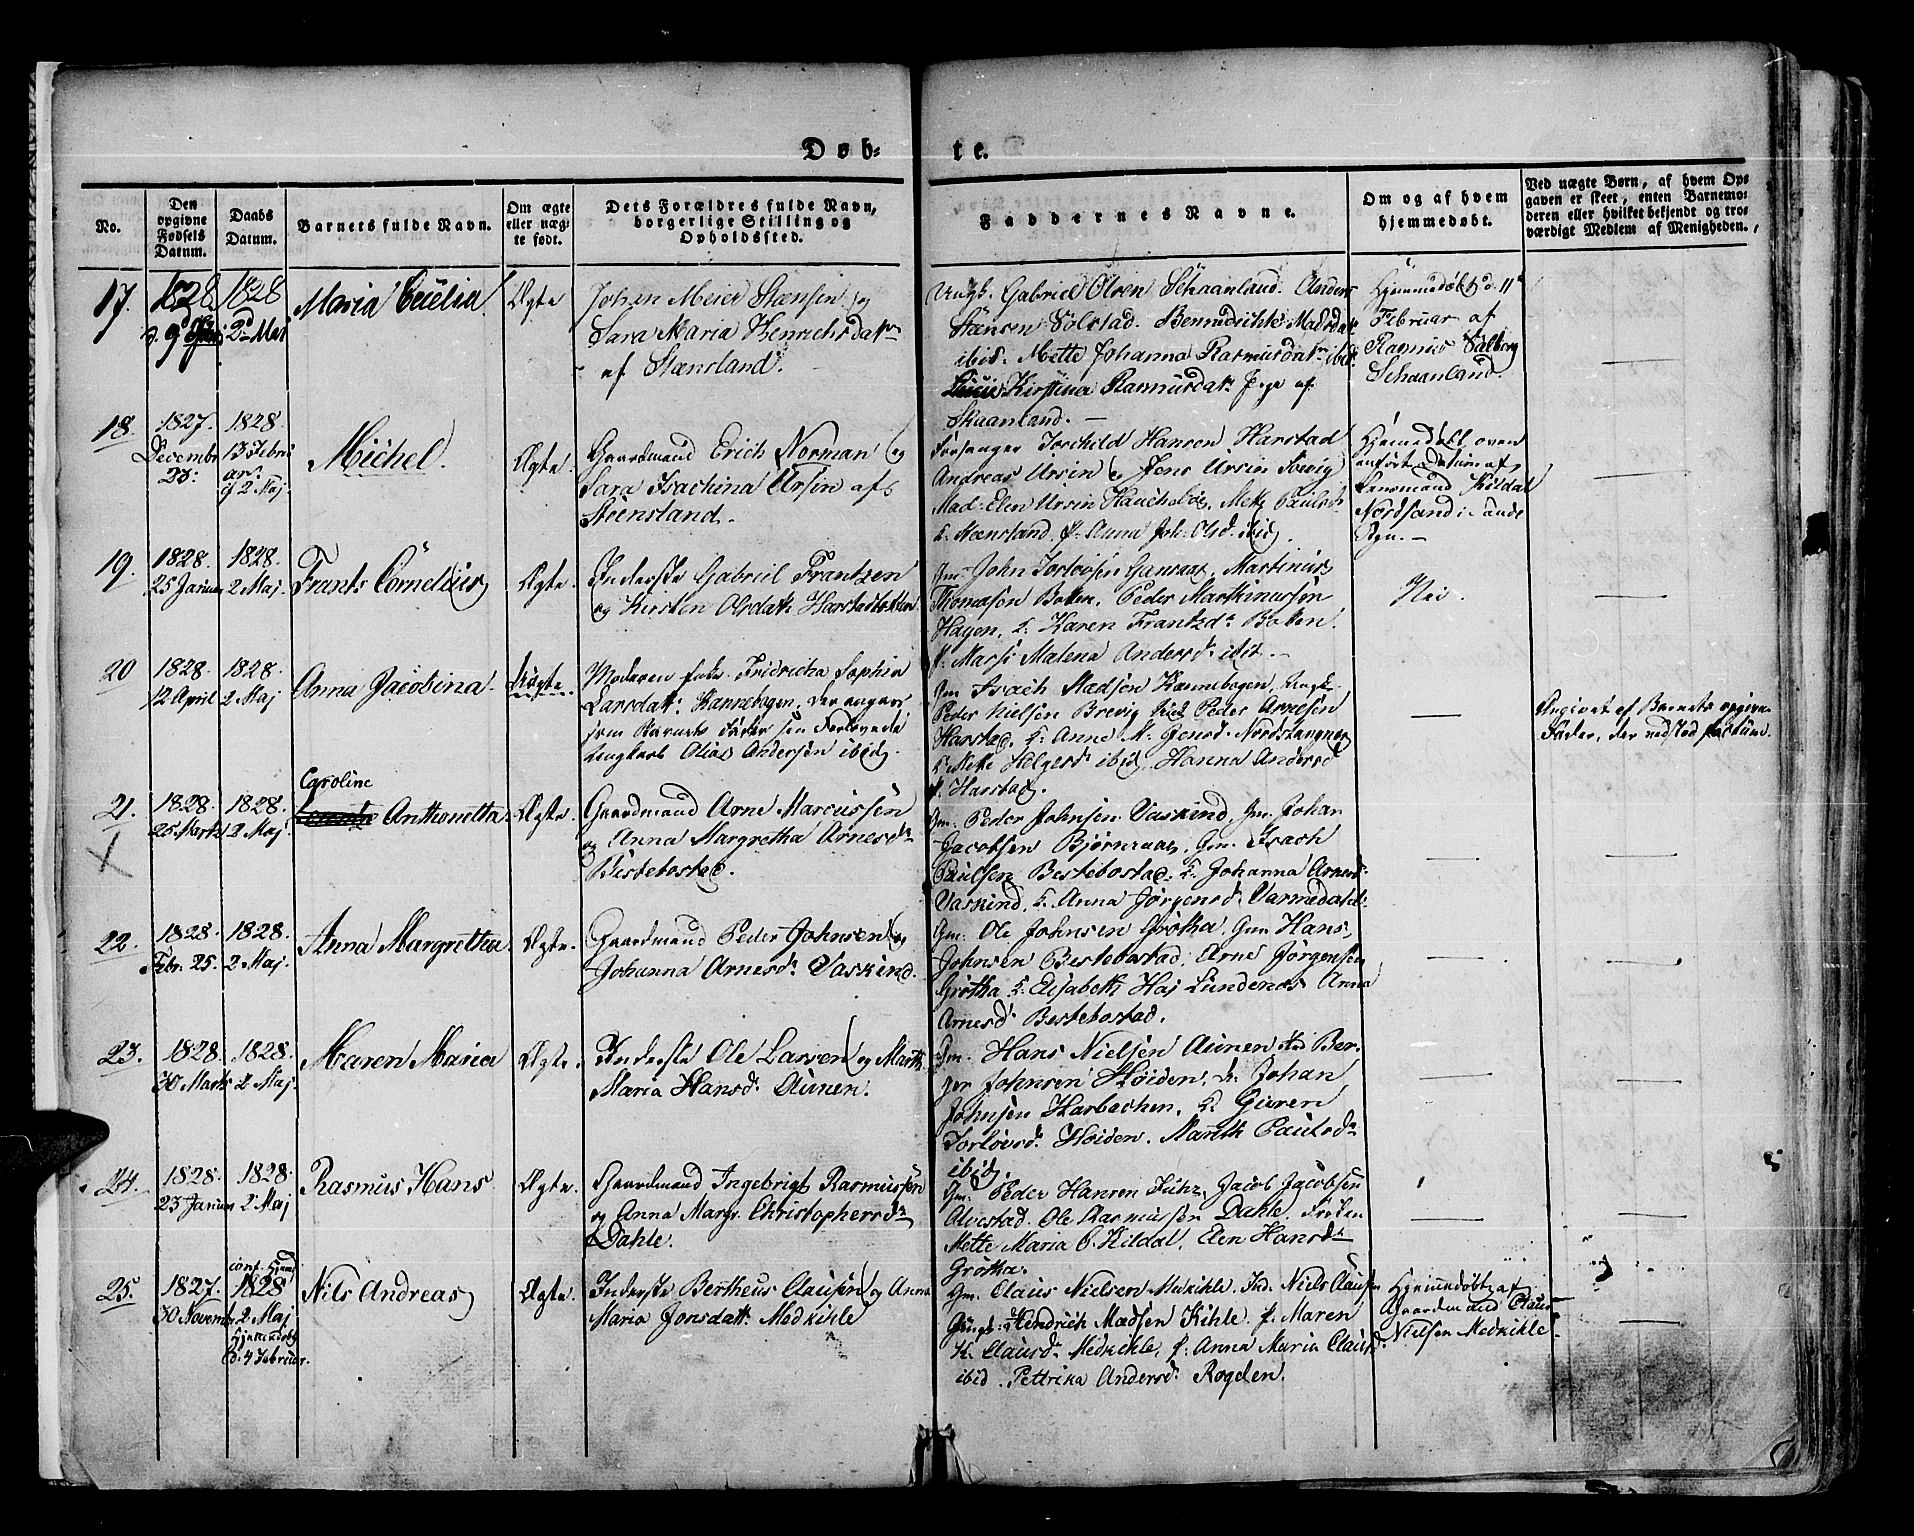 Døb-
te.
No.
Den opgivne Fødsels Datum.
Daabs Datum.
Barnets fulde Navn.
Om ægte eller nægte født.
Dets Forældres fulde Navn, borgerlige Stilling og Opholdssted.
Faddernes Navne.
Om og af hvem hjemmedøbt.
Ved nægte Børn, af hvem Opgaven er skeet, enten Barnemoderen eller hvilket bekjendt og troværdigt Medlem af Menigheden.
17.
1828
1828
2d Mai
Maria
Ægte
Johen Meier Stensen og
Sara Maria Henrichsdatr
af Stensland.
Ungk. Gabriel Olsen Schaanland. Anders
Stensen Solstad. Bennedichte Madsdatr
ibid. Mette Johanna Rasmusdatr ibid.
Kirstina Rasmusdatr af
Skaanland. —
Hjemmedøbt d. 11te
Februar af
Rasmus Salberg
Schaanland.
18.
1827.
Decembr
23.
1828.
13 Febru
ar.
2 Maj.
Michel.
Ægte.
Gaardmand Erich Norman og
Sara Isachina Ursin af
Steensland.
Forsanger Torchild Hansen Harstad
Andreas Ursin og Jens Ursin
Mad: Elen Ursin Mette Pauls
Steensland, f. Anna Joh. Olsd. ibid.
Hjemmedøbt oven
anført datum af
Lensmand Kildal
Nordsand i
19.
1828.
25 Januar
1828.
2 Maj.
Frants Cornelius
Ægte.
Inderste Gabriel Frantzen
og Kirsten Olsdatr
Gm. John Torlevsen Martinus
Thomesen Boken. Peder Martinussen
Hagen, K. Karen Frantzdr Boken
f. Malena Andersdr ibid.
Nei.
20
1828.
12 April
1828.
2 Maj
Anna Jacobina.
Uægte.
Moderen Fridricha Sophia
Larsdatr Kannebogen, der angav
som Barnets Fader sin Forlovede
Ungkarl Olias Andersen ibid.
Gm Isach Madsen Kannebogen, Ungk.
Peder Nielsen Brevig Peder Arnesen
Harstad, K. Anne M. Jensd.
K. Mette Helgesd. ibid, Hanna Andersd
f. Harstad.
Angivet af Barnets opgivne
Fader, der
21.
1828.
25 Marts
1828.
2 Maj.
Caroline
Anthonetta.
Ægte.
Gaardmand Arne Marcussen
og Anna Margretha Arnesdr
Bestebostad.
Gm. Peder Johnsen Vaskind, Gm. Johan
Jacobsen Bjørnraae, Gm. Isach
Paulsen Bestebostad. K. Johanna Arnesdr
Vaskind, K. Anna Jørgensdr
22.
1828.
Febr. 25.
1828.
2 Maj.
Anna Margretha.
Ægte.
Gaardmand Peder Johnsen og
Johanna Arnesdr Vaskind.
Gm. Ole Johnsen Grøtha, Gm Hans
Johnsen Bestebostad. Arne Jørgensen
Grøtha K. Elisabeth Haj Lundenes Anna
Arnesdr Bestebostad.
23.
1828.
30 Marts
1828.
2 Maj.
Maren Maria
Ægte.
Inderste Ole Larsen og
Maria Hansdr Aunen.
Gm. Hans Nielsen Aunen Ber-
ger Johnsen Høiden, Johan
Johnsen Harbachen, K. Guren
Torlevsdr Høiden. Marith Paulsdr
ibid.
24.
1828.
23 Januar
1828.
2 Maj
Rasmus Hans
Ægte.
Gaardmand Ingebrigt Rasmussen
og Anna Margr. Christophersdr
Dahle.
Gm: Peder Hansen Jacob Jacobsen
Alvestad. Ole Rasmussen Dahle. Frøken
Mette Maria Kildal. Elen Hansdr
Grøtha.
25.
1827.
30 Novembr
1828
2 Maj
Hjemmedøbt
d. 4 Februar.
Nils Andreas
Ægte.
Inderste Bertheus Clausen og Anna
Maria Jonsdatr Medkihle
Gm. Claus Nielsen Medkihle. Niels Clausen
Ungk. Hendrich Madsen Kihle, f. Maren
K. Clausdr Medkihle, f. Anna Maria Clausd.
ibid. Pettrika Andersdr Rogden.
Hjemmedøbt af
Gaardmand Claus
Nielsen Medkihle